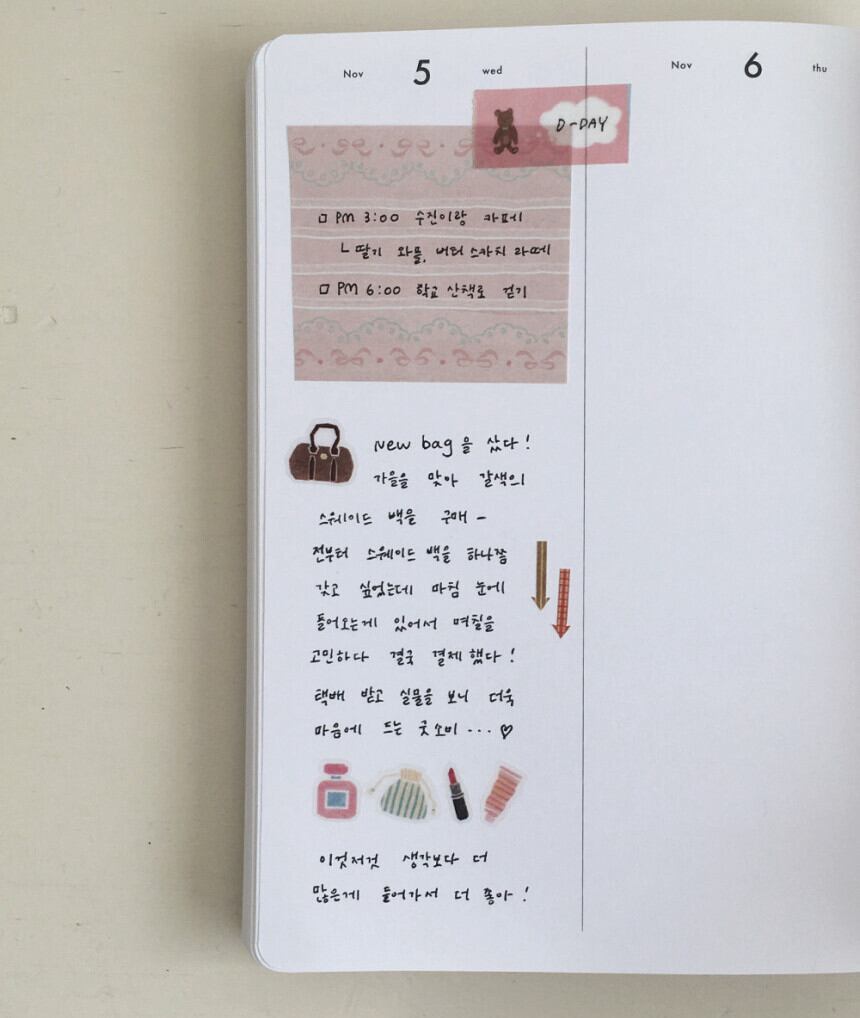 Nov 5 wed
D-DAY
□ PM 3:00 수진이랑 카페
└ 딸기 와플, 버터 스카치 라떼
□ PM 6:00 학교 산책로 걷기
New bag을 샀다!
가을을 맞아 갈색의
스웨이드 백을 구매 –
전부터 스웨이드 백을 하나쯤
갖고 싶었는데 마침 눈에
들어오는게 있어서 며칠을
고민하다 결국 결제했다!
택배 받고 실물을 보니 더욱
마음에 드는 굿소비 ··· ♡
이것저것 생각보다 더
많은게 들어가서 더 좋아!
Nov 6 thu